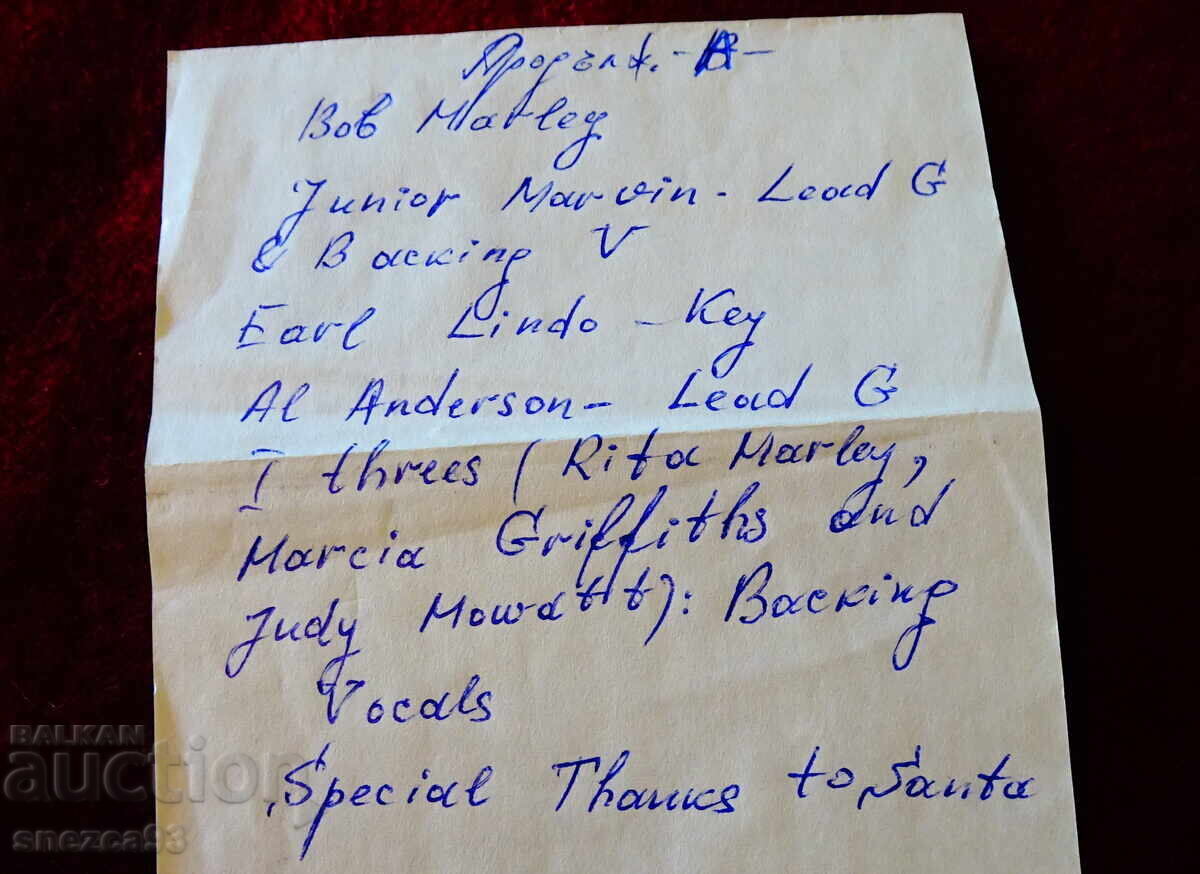 Продълж. -A-
Bob Marley
Junior Marvin - Lead G
& Backing V
Earl Lindo - Key
Al Anderson - Lead G
I threes (Rita Marley,
Marcia Griffiths and
Judy Mowatt): Backing
Vocals
Special Thanks to Santa
BALKAN
auction
snezca93